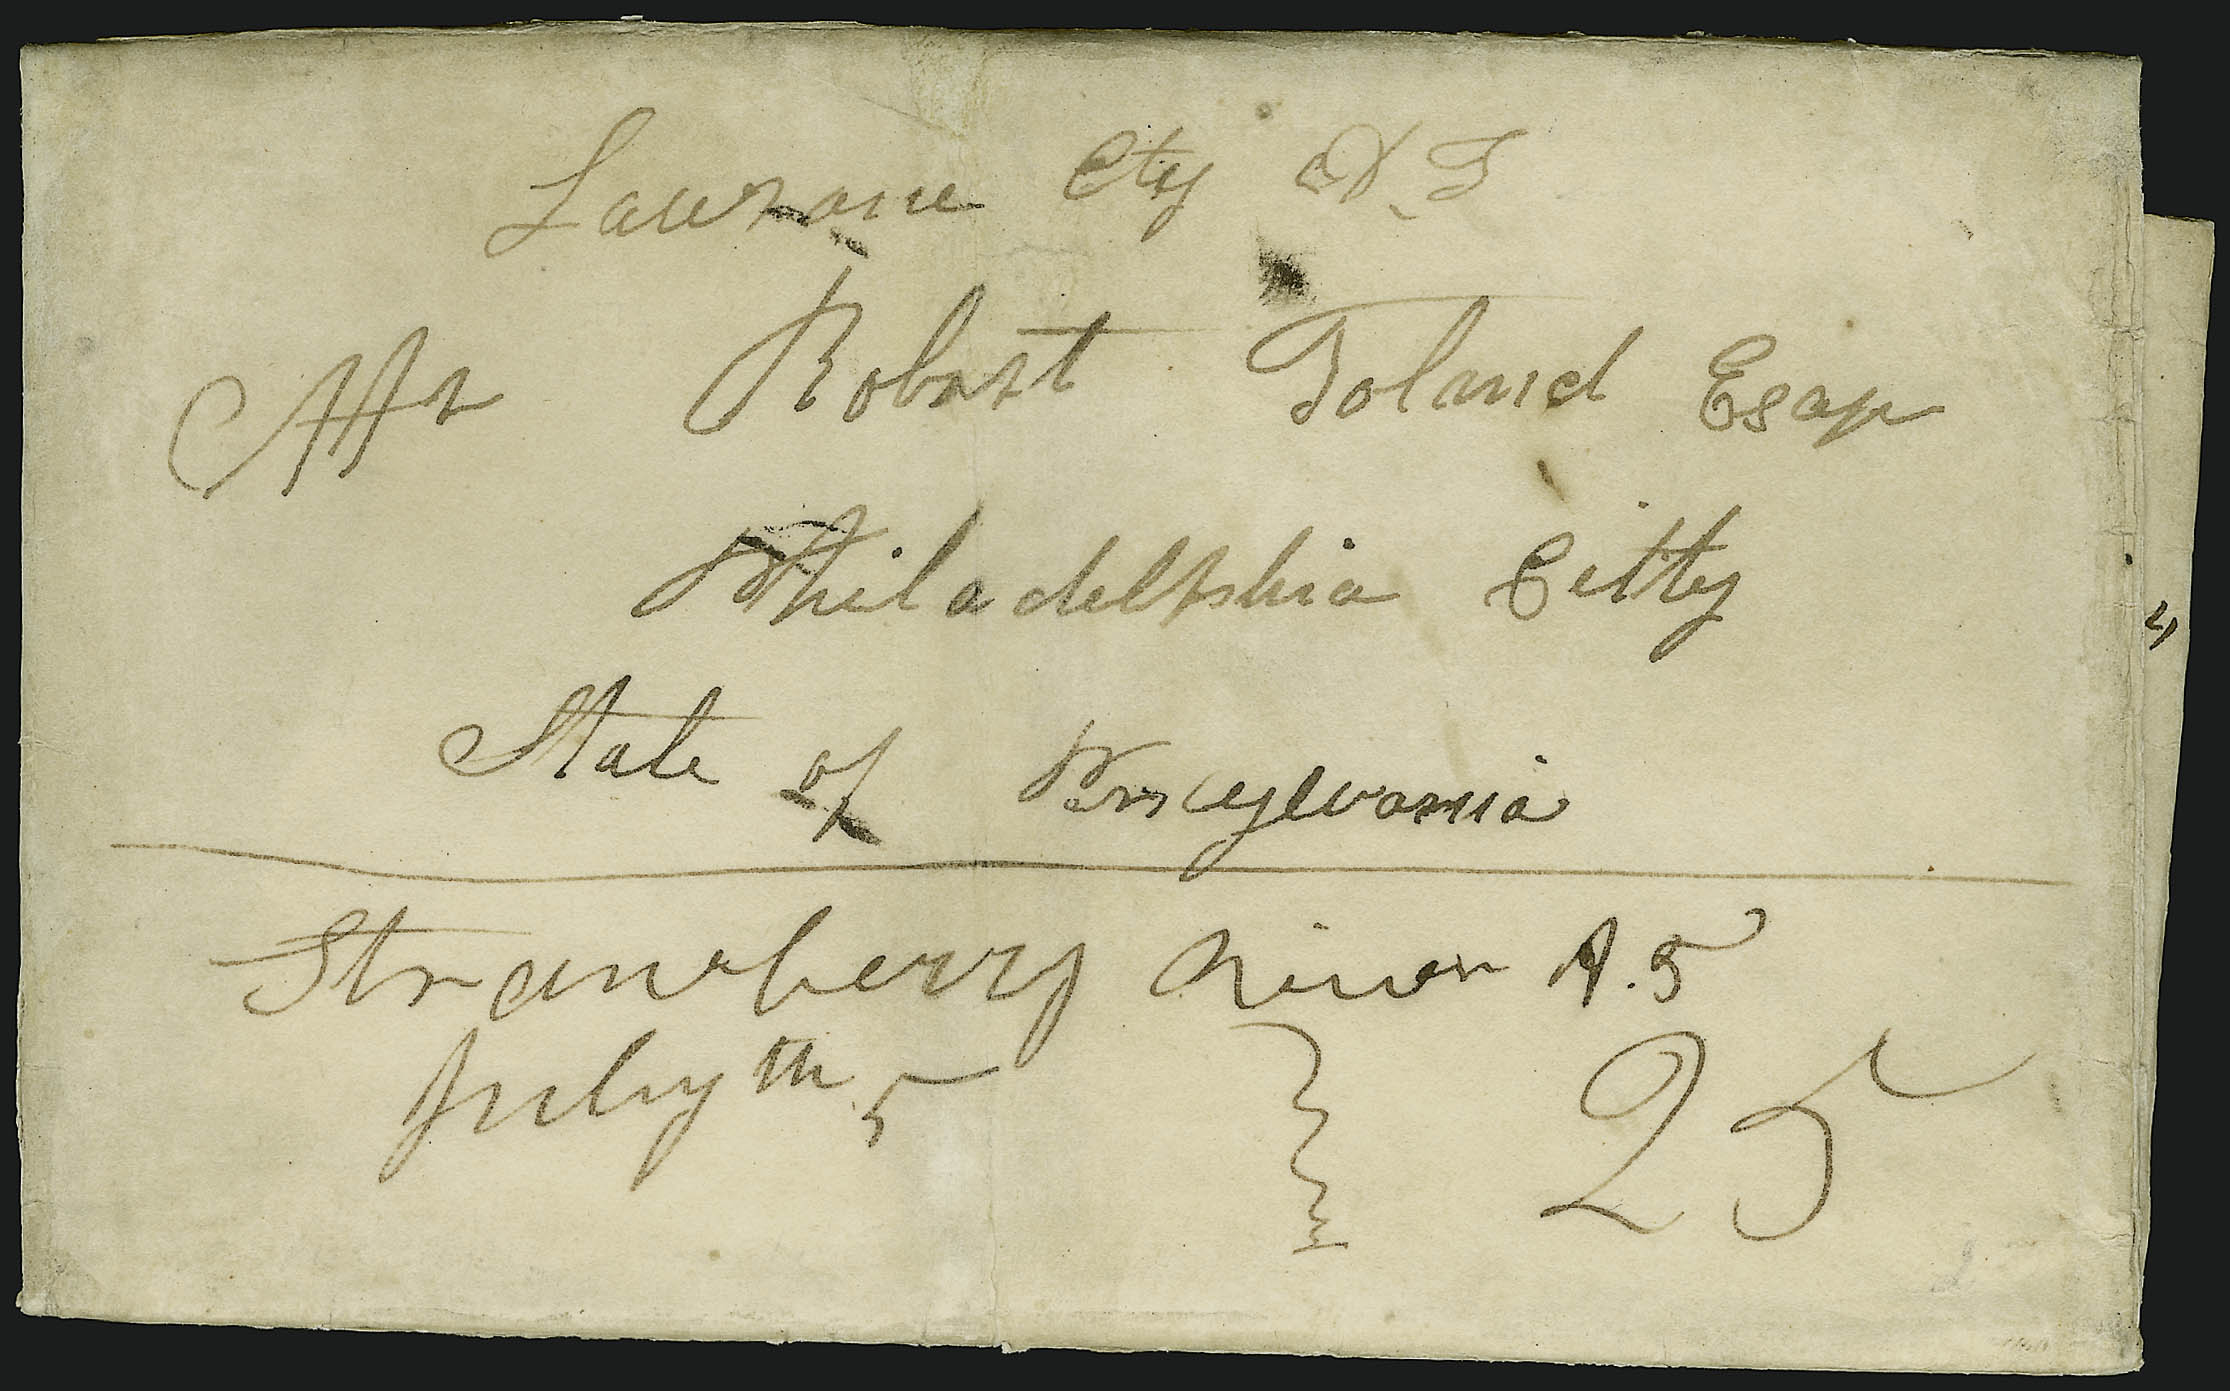 Lawrance Cty A. T
Mr Robert Toland Esqr
Philadelphia Citty
State of Pensylvania
Strawberry River A. T
July th 5 25